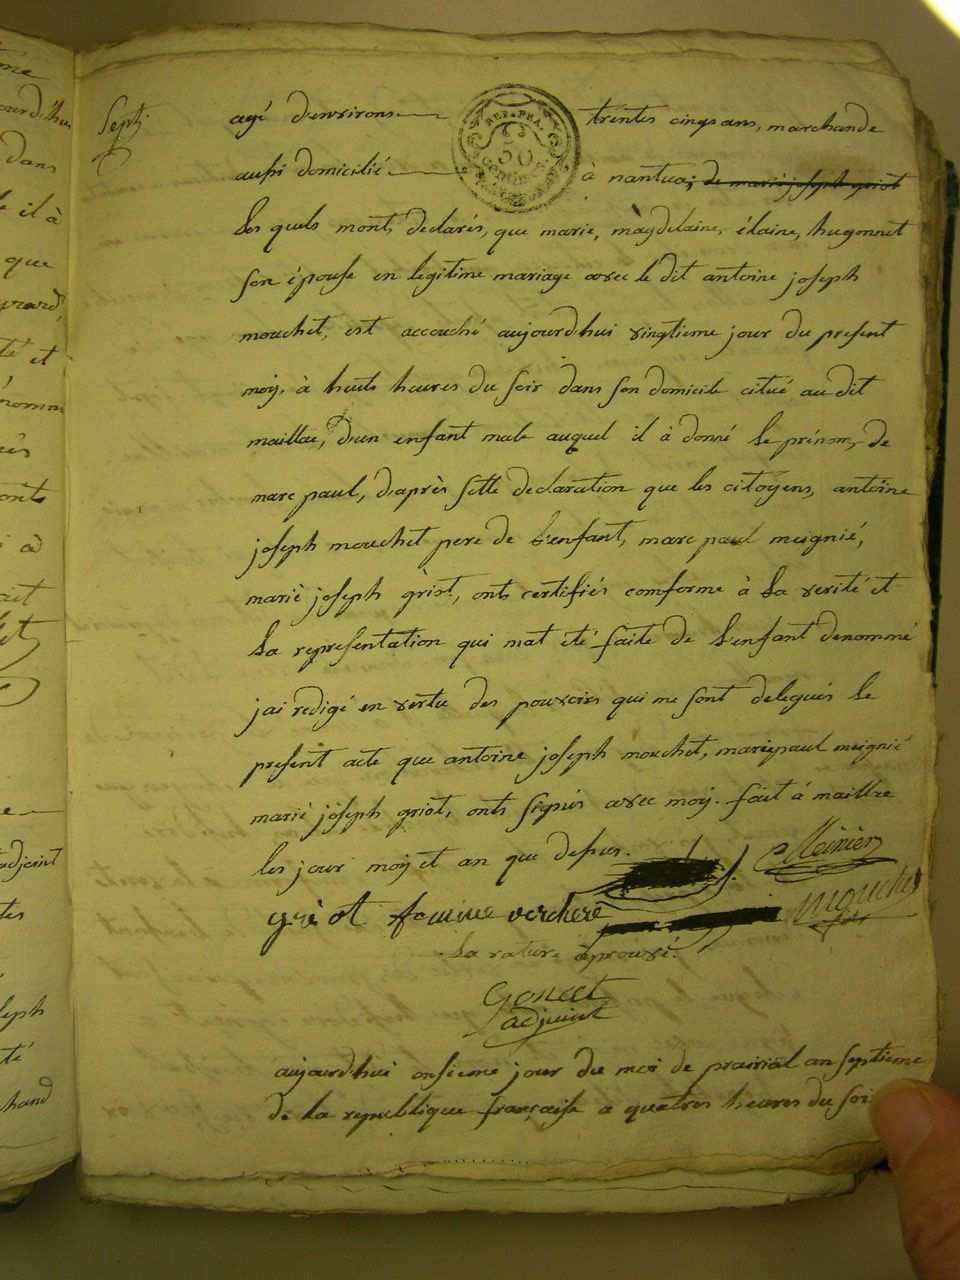 Sept
agé d'environs trentes cinq ans, marchande
REP. FRA.
50
centimes
aussi domicilié à nantua; de marie joseph griot
Les quels mont, declarés, que marie, magdelaine, élaine, hugonnet
son épouse en legitime mariage avec le dit antoine joseph
mouchet, est accouché aujourdhui vingtieme jour du present
moy, à huits heures du soir dans son domicile citué au dit
maillac, d'un enfant male auquel il à donné le prénom, de
marc paul, daprès sette declaration que les citoyens, antoine
joseph mouchet pere de l'enfant, marc paul meignié,
marié joseph griot, onts certifiés comforme à la verité et
la representation qui mat été faite de l'enfant denommé
jai redigé en vertu des pouvoirs qui me sont delegués le
present acte que antoine joseph mouchet, marie paul meignié
marié joseph griot, onts signés avec moy. fait à maillac
les jour moy et an que desus.
Meinier
griot femme verchere mouchet
la rature àprouvé.
Goncet
adjoint
aujourdhui onsieme jour du moi de prairial an septieme
de la republique française a quatres heures du soir